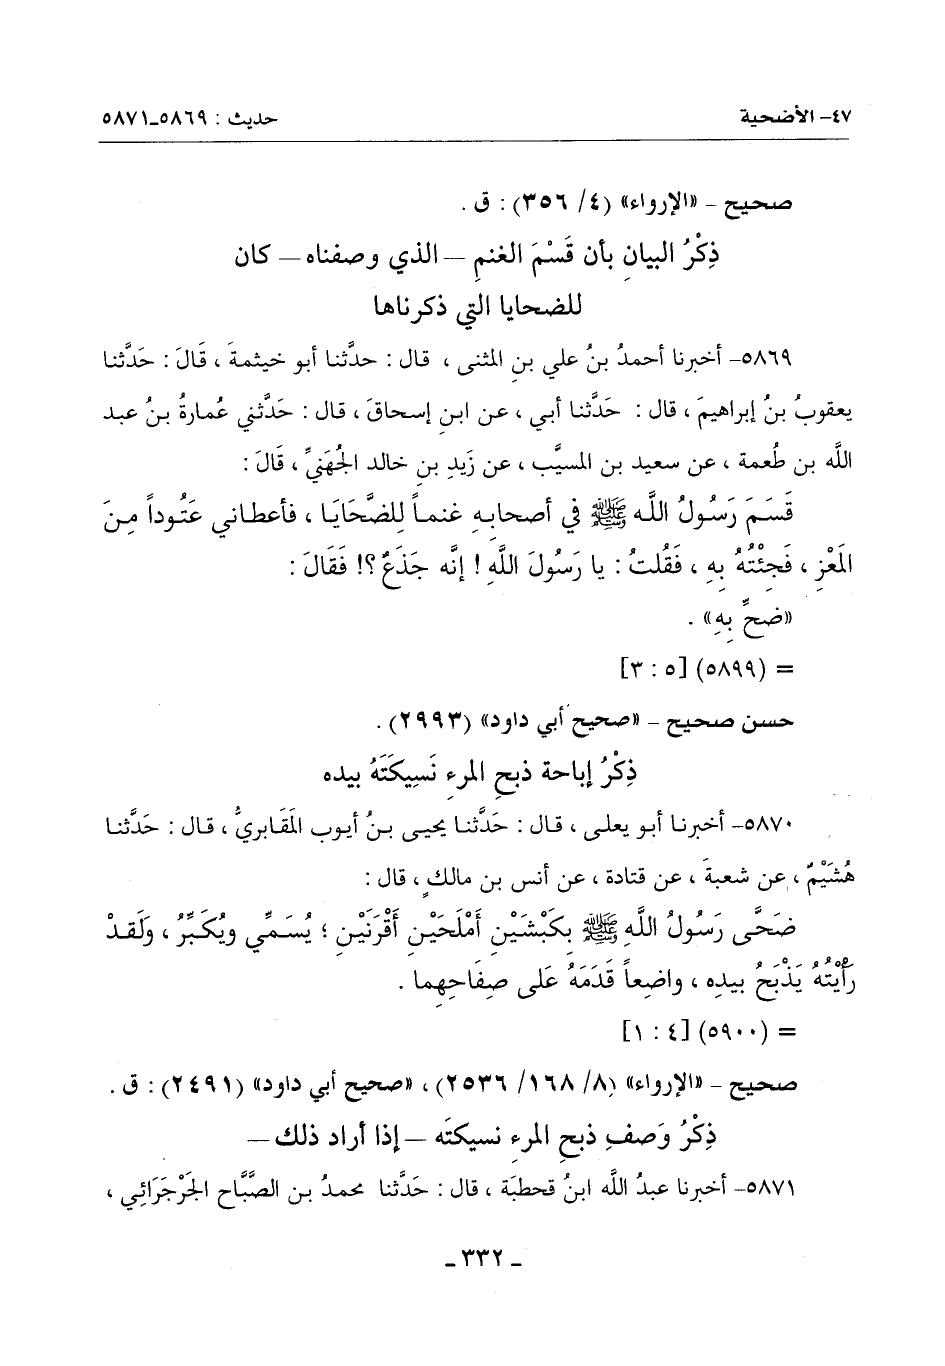 ٤٧- الأضحية حديث : ٥٨٦٩ـ٥٨٧١
صحيح – «الإرواء» (٤/ ٣٥٦) : ق .
ذِكْرُ البيانِ بأن قَسْمَ الغنمِ – الذي وصفناه – كان
للضحايا التي ذكرناها
٥٨٦٩- أخبرنا أحمدُ بنُ علي بنِ المثنى ، قال : حدَّثنا أبو خيثمةَ ، قَالَ : حَدَّثنا
يعقوبُ بنُ إبراهيمَ ، قال : حَدَّثنا أبي ، عن ابنِ إسحاقَ ، قال : حَدَّثني عُمارةُ بنُ عبد
اللَّه بن طُعمة ، عن سعيد بن المسيَّب ، عن زَيدِ بنِ خالد الجُهَنيِّ ، قَالَ :
قَسَمَ رَسُولُ اللَّه ﷺ في أصحابهِ غنماً لِلضَّحَايَا ، فأعطاني عَتُوداً مِنَ
المَعْزِ ، فَجِئْتُهُ بِهِ ، فَقُلتُ : يا رَسُولَ اللَّهِ ! إنَّه جَذَعٌ ؟! فَقَالَ :
«ضحِّ بِهِ» .
= (٥٨٩٩) [٥ : ٣]
حسن صحيح – «صحيح أبي داود» (٢٩٩٣) .
ذِكْرُ إباحة ذبحِ المرءِ نَسِيكَتَهُ بيده
٥٨٧٠- أخبرنا أبو يعلى ، قال : حَدَّثنا يحيى بنُ أيوب المَقابريُّ ، قال : حَدَّثنا
هُشَيْمٌ ، عن شعبةَ ، عن قتادة ، عن أنس بن مالكٍ ، قال :
ضَحَّى رَسُولُ اللَّهِ ﷺ بِكَبْشَيْنِ أَمْلَحَيْنِ أَقْرَنَيْنِ ؛ يُسَمِّي ويُكَبِّرُ ، وَلَقدْ
رَأَيْتُهُ يَذْبَحُ بيدِه ، واضِعاً قَدَمَهُ عَلى صِفَاحِهِما .
= (٥٩٠٠) [٤ : ١]
صحيح – «الإرواء» (٨/ ١٦٨/ ٢٥٣٦) ، «صحيح أبي داود» (٢٤٩١) : ق .
ذِكْرُ وَصفِ ذبحِ المرءِ نسيكتَه – إذا أراد ذلك –
٥٨٧١- أخبرنا عبدُ اللَّه ابنُ قحطبَة ، قال : حَدَّثنا محمدُ بن الصَّبَّاح الجَرْجَرَائِي ،
ـ ٣٣٢ ـ